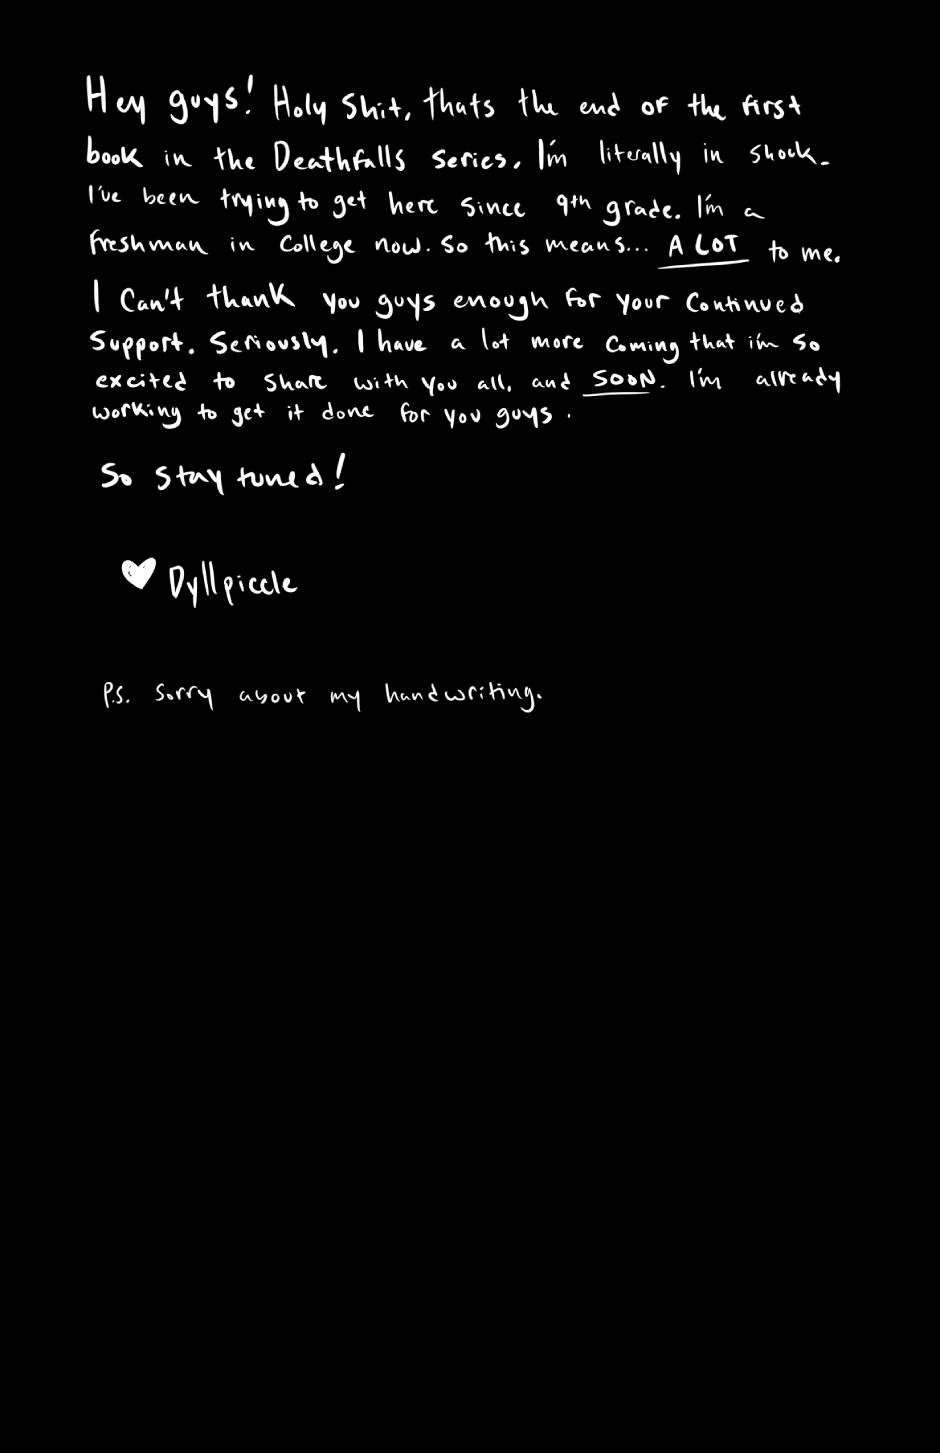 Hey guys! Holy Shit, thats the end of the first
book in the Deathfalls series. I'm literally in shock.
I've been trying to get here since 9th grade. I'm a
freshman in College now. So this means... A LOT to me.
I Can't thank you guys enough for your Continued
Support. Seriously. I have a lot more coming that i'm so
excited to share with you all, and SOON. I'm already
working to get it done for you guys.
So stay tuned!
♥ Dyllpiccle
P.S. Sorry about my handwriting.